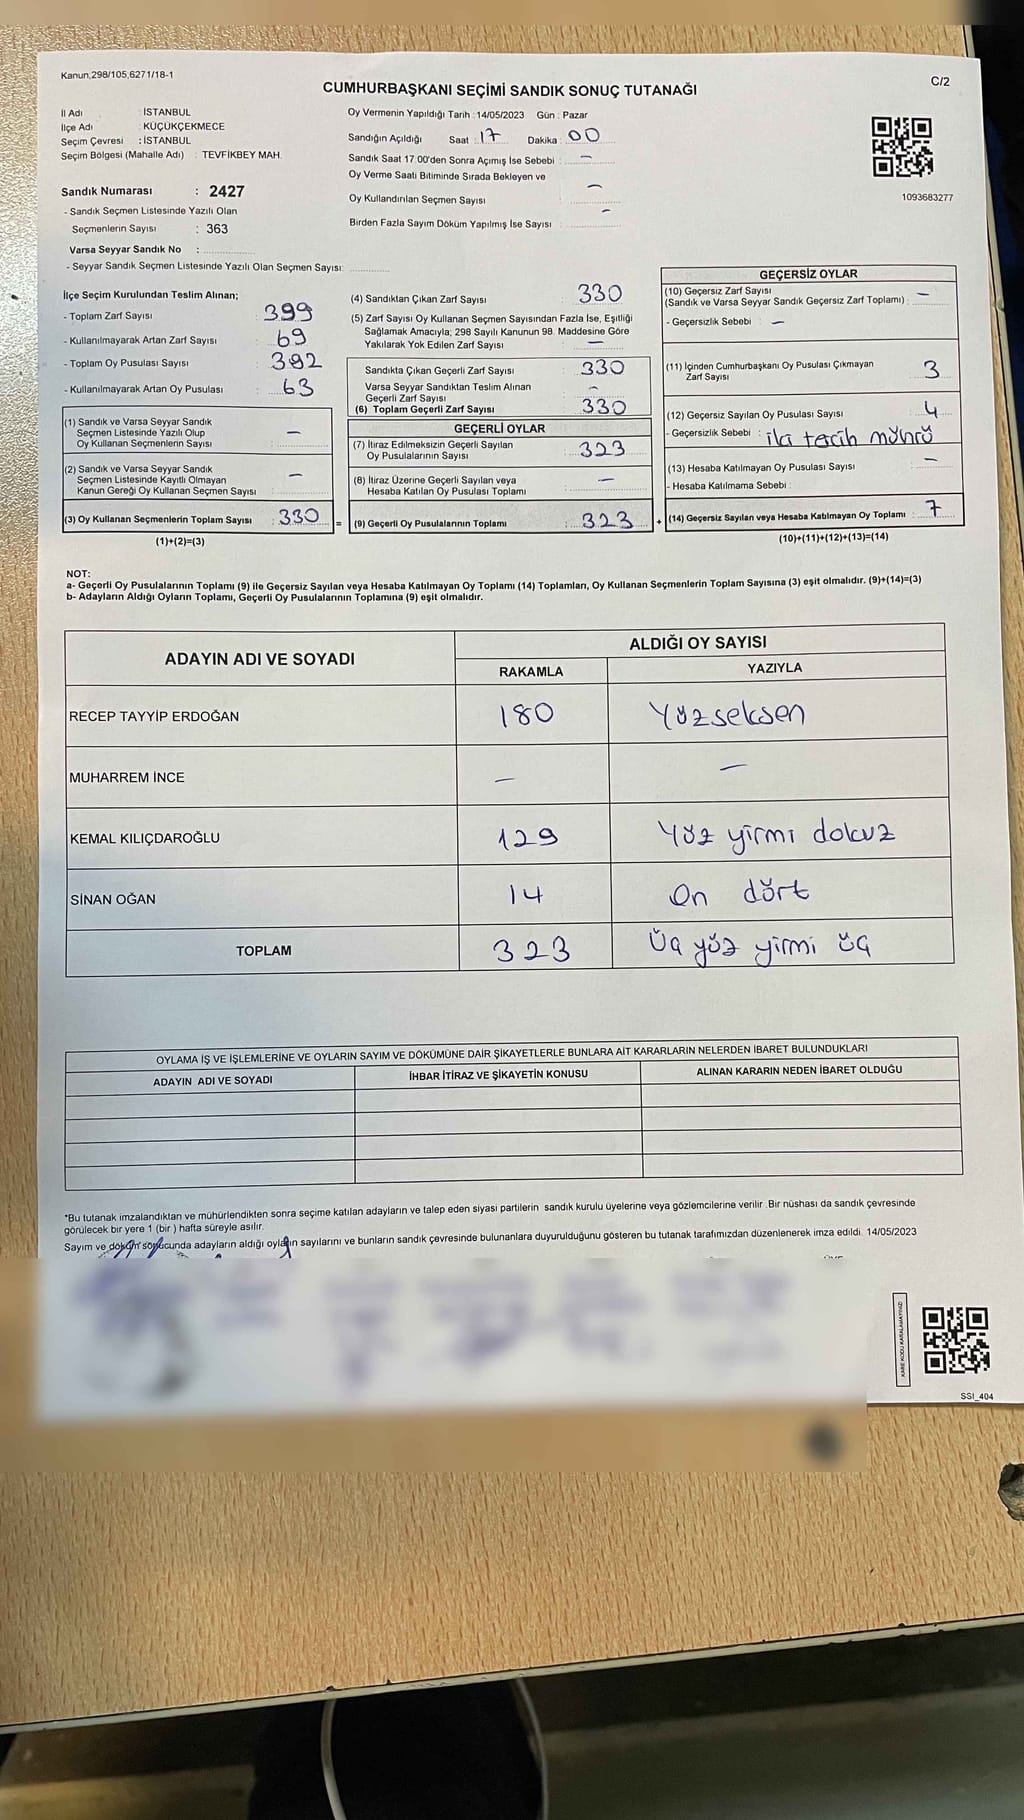 Kanun,298/105,6271/18-1
C/2
CUMHURBAŞKANI SEÇİMİ SANDIK SONUÇ TUTANAĞI
İl Adı : İSTANBUL
İlçe Adı : KÜÇÜKÇEKMECE
Seçim Çevresi : İSTANBUL
Seçim Bölgesi (Mahalle Adı) : TEVFİKBEY MAH.
Sandık Numarası : 2427
- Sandık Seçmen Listesinde Yazılı Olan
Seçmenlerin Sayısı : 363
Varsa Seyyar Sandık No :
- Seyyar Sandık Seçmen Listesinde Yazılı Olan Seçmen Sayısı:
Oy Vermenin Yapıldığı Tarih : 14/05/2023 Gün : Pazar
Sandığın Açıldığı Saat : 17 Dakika : 00
Sandık Saat 17.00'den Sonra Açımış İse Sebebi : –
Oy Verme Saati Bitiminde Sırada Bekleyen ve
Oy Kullandırılan Seçmen Sayısı –
Birden Fazla Sayım Döküm Yapılmış İse Sayısı : –
1093683277
İlçe Seçim Kurulundan Teslim Alınan;
- Toplam Zarf Sayısı : 399
- Kullanılmayarak Artan Zarf Sayısı : 69
- Toplam Oy Pusulası Sayısı : 392
- Kullanılmayarak Artan Oy Pusulası : 63
(1) Sandık ve Varsa Seyyar Sandık
Seçmen Listesinde Yazılı Olup
Oy Kullanan Seçmenlerin Sayısı : –
(2) Sandık ve Varsa Seyyar Sandık
Seçmen Listesinde Kayıtlı Olmayan
Kanun Gereği Oy Kullanan Seçmen Sayısı : –
(3) Oy Kullanan Seçmenlerin Toplam Sayısı : 330
(1)+(2)=(3)
(4) Sandıktan Çıkan Zarf Sayısı : 330
(5) Zarf Sayısı Oy Kullanan Seçmen Sayısından Fazla İse, Eşitliği
Sağlamak Amacıyla; 298 Sayılı Kanunun 98. Maddesine Göre
Yakılarak Yok Edilen Zarf Sayısı : –
Sandıkta Çıkan Geçerli Zarf Sayısı : 330
Varsa Seyyar Sandıktan Teslim Alınan
Geçerli Zarf Sayısı : –
(6) Toplam Geçerli Zarf Sayısı : 330
GEÇERLİ OYLAR
(7) İtiraz Edilmeksizin Geçerli Sayılan
Oy Pusulalarının Sayısı : 323
(8) İtiraz Üzerine Geçerli Sayılan veya
Hesaba Katılan Oy Pusulası Toplamı : –
= (9) Geçerli Oy Pusulalarının Toplamı : 323
GEÇERSİZ OYLAR
(10) Geçersiz Zarf Sayısı
(Sandık ve Varsa Seyyar Sandık Geçersiz Zarf Toplamı) : –
- Geçersizlik Sebebi : –
(11) İçinden Cumhurbaşkanı Oy Pusulası Çıkmayan
Zarf Sayısı : 3
(12) Geçersiz Sayılan Oy Pusulası Sayısı : 4
- Geçersizlik Sebebi : iki tercih mührü
(13) Hesaba Katılmayan Oy Pusulası Sayısı : –
- Hesaba Katılmama Sebebi :
+ (14) Geçersiz Sayılan veya Hesaba Katılmayan Oy Toplamı : 7
(10)+(11)+(12)+(13)=(14)
NOT:
a- Geçerli Oy Pusulalarının Toplamı (9) ile Geçersiz Sayılan veya Hesaba Katılmayan Oy Toplamı (14) Toplamları, Oy Kullanan Seçmenlerin Toplam Sayısına (3) eşit olmalıdır. (9)+(14)=(3)
b- Adayların Aldığı Oyların Toplamı, Geçerli Oy Pusulalarının Toplamına (9) eşit olmalıdır.
ADAYIN ADI VE SOYADI
ALDIĞI OY SAYISI
RAKAMLA YAZIYLA
RECEP TAYYİP ERDOĞAN 180 Yüzseksen
MUHARREM İNCE – –
KEMAL KILIÇDAROĞLU 129 Yüz yirmi dokuz
SİNAN OĞAN 14 On dört
TOPLAM 323 Üç yüz yirmi üç
OYLAMA İŞ VE İŞLEMLERİNE VE OYLARIN SAYIM VE DÖKÜMÜNE DAİR ŞİKAYETLERLE BUNLARA AİT KARARLARIN NELERDEN İBARET BULUNDUKLARI
ADAYIN ADI VE SOYADI İHBAR İTİRAZ VE ŞİKAYETİN KONUSU ALINAN KARARIN NEDEN İBARET OLDUĞU
*Bu tutanak imzalandıktan ve mühürlendikten sonra seçime katılan adayların ve talep eden siyasi partilerin sandık kurulu üyelerine veya gözlemcilerine verilir. Bir nüshası da sandık çevresinde
görülecek bir yere 1 (bir ) hafta süreyle asılır.
Sayım ve döküm sonucunda adayların aldığı oyların sayılarını ve bunların sandık çevresinde bulunanlara duyurulduğunu gösteren bu tutanak tarafımızdan düzenlenerek imza edildi. 14/05/2023
KARE KODU KARALAMAYINIZ!
SSI_404